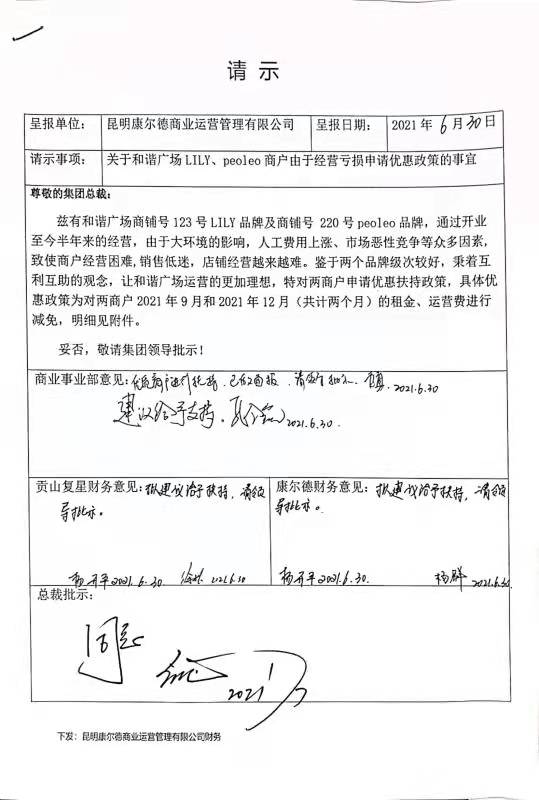 请 示
呈报单位： 昆明康尔德商业运营管理有限公司 呈报日期： 2021 年 6 月 30 日
请示事项： 关于和谐广场 LILY、peoleo 商户由于经营亏损申请优惠政策的事宜
尊敬的集团总裁：
兹有和谐广场商铺号 123 号 LILY 品牌及商铺号 220 号 peoleo 品牌，通过开业
至今半年来的经营，由于大环境的影响，人工费用上涨、市场恶性竞争等众多因素，
致使商户经营困难,销售低迷，店铺经营越来越难。鉴于两个品牌级次较好，秉着互
利互助的观念，让和谐广场运营的更加理想，特对两商户申请优惠扶持政策，具体优
惠政策为对两商户 2021 年 9 月和 2021 年 12 月（共计两个月）的租金、运营费进行
减免，明细见附件。
妥否，敬请集团领导批示！
商业事业部意见： 2021.6.30
建议给予支持。 2021.6.30
贡山复星财务意见： 拟建议给予扶持，请领
导批示。
杨开平 2021.6.30 2021.6.30
康尔德财务意见： 拟建议给予扶持，请领
导批示。
杨开平 2021.6.30 杨群 2021.6.30
总裁批示：
同意
2021
下发：昆明康尔德商业运营管理有限公司财务